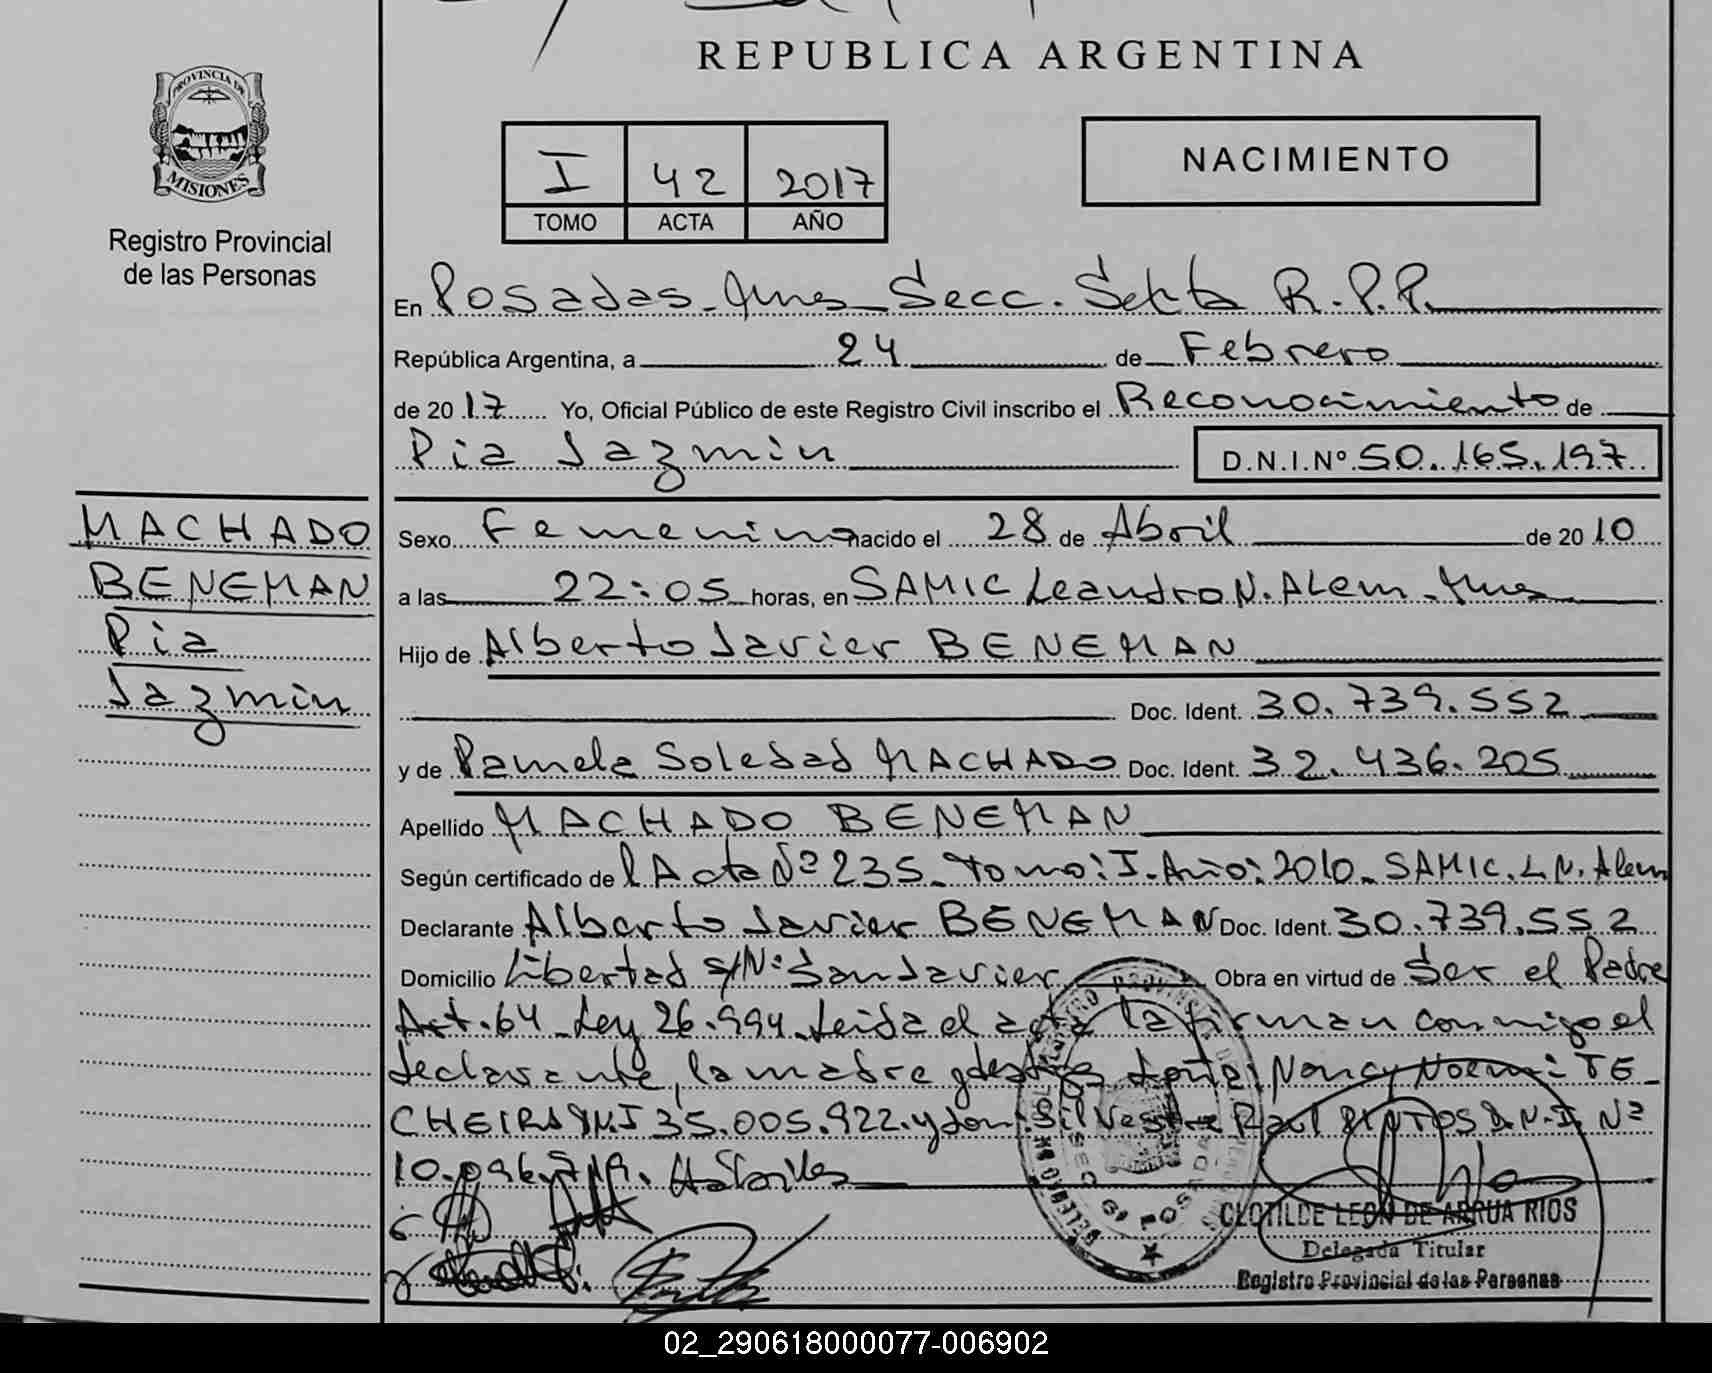 REPUBLICA ARGENTINA
PROVINCIA DE
MISIONES
Registro Provincial
de las Personas
I 42 2017
TOMO ACTA AÑO
NACIMIENTO
En Posadas-Mnes-Secc. Sexta R.P.P.
República Argentina, a 24 de Febrero
de 2017 Yo, Oficial Público de este Registro Civil inscribo el Reconocimiento de
Pia Jazmin D.N.I.Nº 50.165.197
MACHADO
BENEMAN
Pia
Jazmin
Sexo Femenino nacido el 28 de Abril de 2010
a las 22:05 horas, en SAMIC Leandro N. Alem-Mnes
Hijo de Alberto Javier BENEMAN
Doc. Ident. 30.739.552
y de Pamela Soledad MACHADO Doc. Ident. 32.436.205
Apellido MACHADO BENEMAN
Según certificado de l Acta Nº 235-Tomo: I-Año: 2010-SAMIC.L.N.Alem
Declarante Alberto Javier BENEMAN Doc. Ident. 30.739.552
Domicilio Libertad S/Nº San Javier Obra en virtud de Ser el Padre
Art. 64-Ley 26.994-Leida el acta la firman conmigo el
declarante, la madre y testigos doña Nancy Noemi TE-
CHEIRA DNI 35.005.922. y don Silvestre Raul PINTOS D.N.I. Nº
10.
CLOTILDE LEON DE ARRUA RIOS
Delegada Titular
Registro Provincial de las Personas
02_290618000077-006902